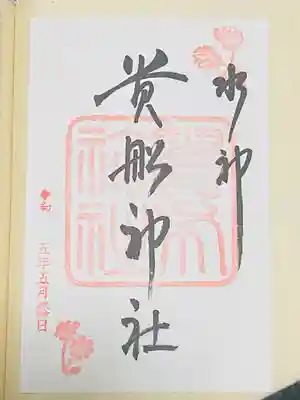 水神
貴船神社
令和 五年五月
日